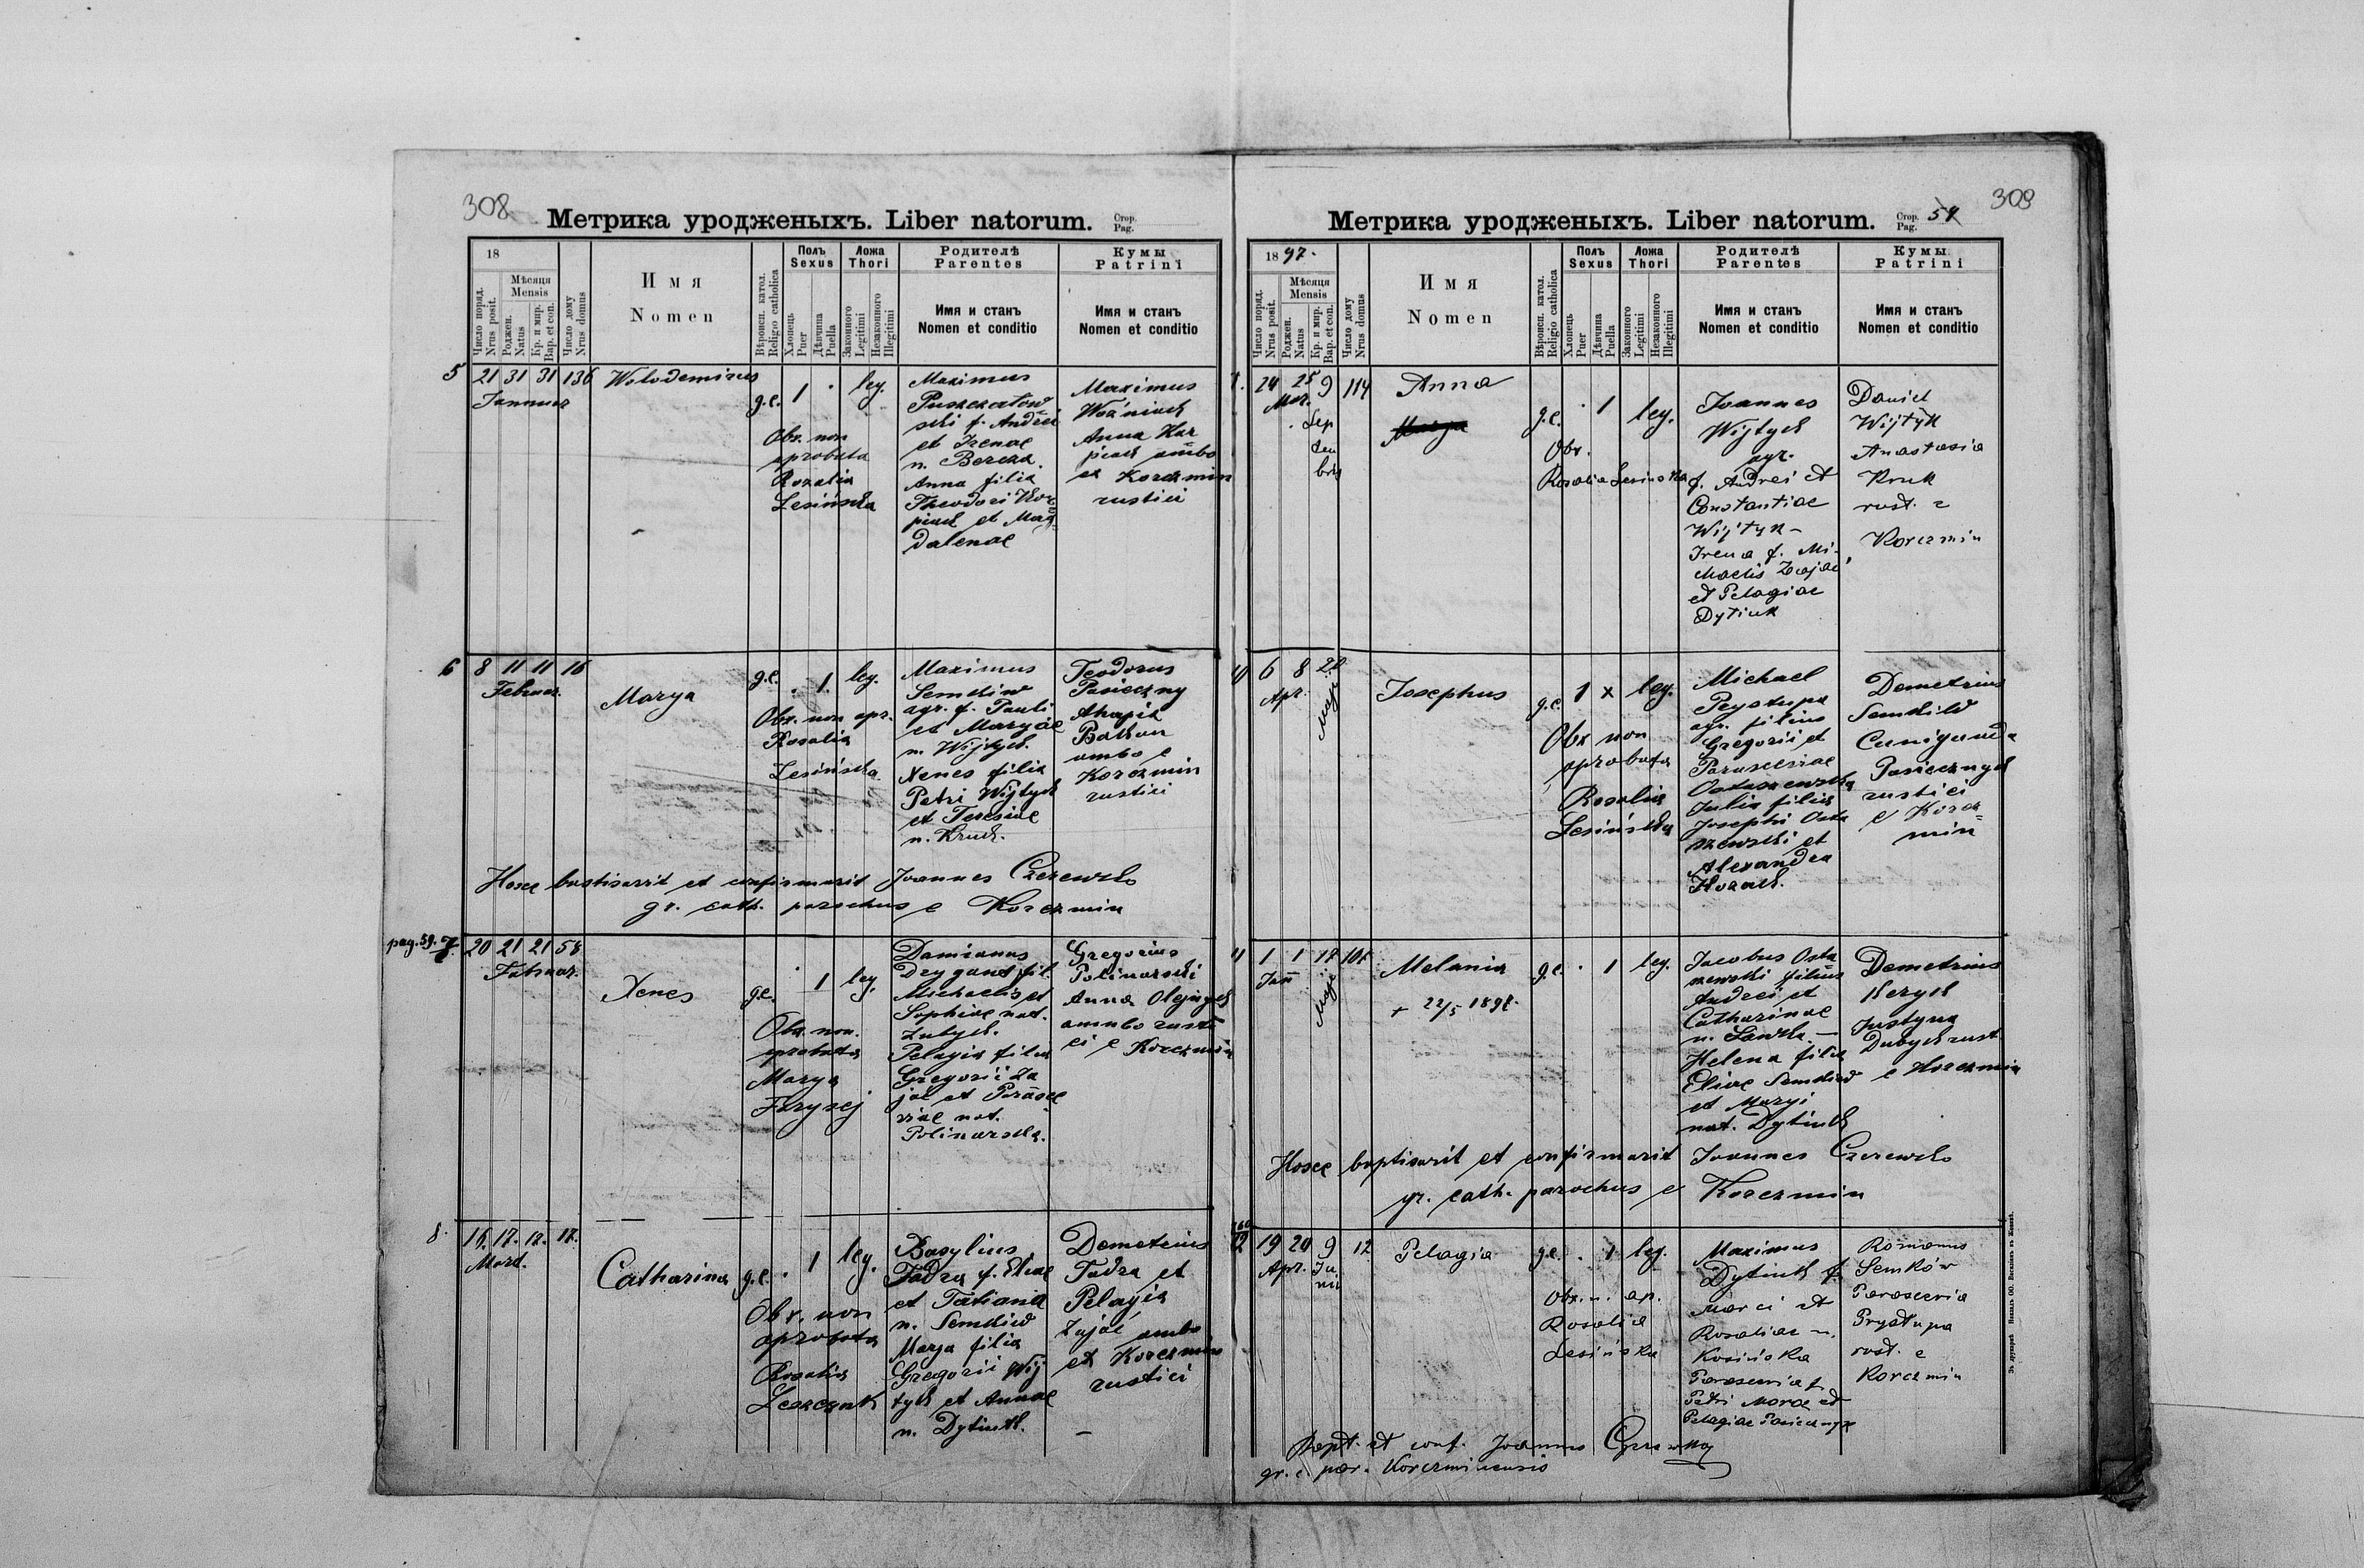 308
Метрика уродженыхъ. Liber natorum. Стор. Pag.
18
Число поряд. Nrus posit.
Мѣсяця Mensis
Роджен. Natus
Кр. и мир. Bap. et con.
Число дому Nrus domus
Имя Nomen
Вѣроисп. катол. Religio catholica
Полъ Sexus
Хлопець Puer
Дѣвчина Puella
Ложа Thori
Законного Legitimi
Незаконного Illegitimi
Родителѣ Parentes
Имя и станъ Nomen et conditio
Кумы Patrini
Имя и станъ Nomen et conditio
5 21 31 31 136
Januar
Wolodemirus
g.c. 1 . leg.
Obs. non
aprobata
Rozalia
Lesińska
Maximus
ski f. Andrei
et Irenae
n. Bercza.
Anna filia
Theodori Kor
piak et Mag
dalenae
Maximus
Woźniak
Anna Kar
piak ambo
ex Korczmin
rustici
6 8 11 11 16
Februar.
Marya
g.c. . 1. leg.
Obs. non apr.
Rosalia
Lesińska
Maximus
Semkiw
agr. f. Pauli
et Maryae
n. Wijtyk.
Xenes filia
Petri Wijtyk
et Teresiae
n. Kruk.
Teodorus
Pasieczny
Ahapia
ambo e
Korczmin
rustici
Hosce baptisavit et confirmavit Joannes Czerewko
gr. cath. parochus e Korczmin
pag. 59. 7. 20 21 21 58
Februar.
Xenes
g.c. . 1 leg.
Obs. non.
aprobata
Marya
Damianus
Drygant fil.
Michaelis et
Sophiae nat.
Pelagia filia
Gregorii Za
jac et Parasce
viae nat.
Polinarska.
Gregorius
Polinarski
Anna Olejnyk
ambo rusti
ci e Korczmin
8. 16. 17. 17. 17.
Mart.
Catharina
g.c. . 1 leg.
Obs. non
aprobata
Rosalia
Basylius
Fadra f. Eliae
et Tatiana
n. Semkiw
Marja filia
Gregorii Wij
tyk et Annae
n. Dytiuk.
Demetrius
Fadra et
Pelagia
Zajac ambo
ex Korczmin
rustici
309
Метрика уродженыхъ. Liber natorum. Стор. Pag. 59
1897.
Число поряд. Nrus posit.
Мѣсяця Mensis
Роджен. Natus
Кр. и мир. Bap. et con.
Число дому Nrus domus
Имя Nomen
Вѣроисп. катол. Religio catholica
Полъ Sexus
Хлопець Puer
Дѣвчина Puella
Ложа Thori
Законного Legitimi
Незаконного Illegitimi
Родителѣ Parentes
Имя и станъ Nomen et conditio
Кумы Patrini
Имя и станъ Nomen et conditio
24 25 9 114
Mar.
Sep
tem
bris
Anna
Marya
g.c. . 1 leg.
Obs.
Rosalia Lesinska
Joannes
Wijtyk
agr.
f. Andrei et
Constantiae
Wijtyk -
Irena f. Mi-
chaelis Zajac
et Pelagiae
Dytiuk
Daniel
Wijtyk
Anastasia
Kruk
rust. e
Korczmin
6 8 20
Apr. Maji
Josephus
g.c. 1 x leg.
Obs. non
aprobata
Rosalia
Lesińska
Michael
agr. filius
Gregorii et
Parasceviae
Ostaszewska
Julia filia
Josephi Osta
szewski et
Alexandra
Demetrius
Semkiw
Cunigunda
Pasiecznyk
rustici
e Korcz
min
11 1 1 18 101
Jan Maji
Melania
+ 22/5 1898.
g.c. . 1 leg.
Jacobus Osta
szewski filius
Andrei et
Catharinae
n. Sawka. —
Helena filia
Eliae Semkiw
et Maryi
nat. Dytiuk
Demetrius
Justyna
rust.
e Korczmin
Hosce baptisavit et confirmavit Joannes Czerewko
gr. cath. parochus e Korczmin
12 19 20 9 12
Apr. Ju
nii
Pelagia
g.c. . 1 leg.
Obs. n. ap.
Rosalia
Lesińska
Maximus
Dytiuk f.
Marci et
Rosaliae n.
Kosińska
Parascevia f.
Petri Moroz et
Pelagiae Pasiecznyk
Romanus
Semków
Parascevia
Prystupa
rust. e
Korczmin
Bapt. et conf. Joannes Czerewko
gr. c. par. Korczminensis